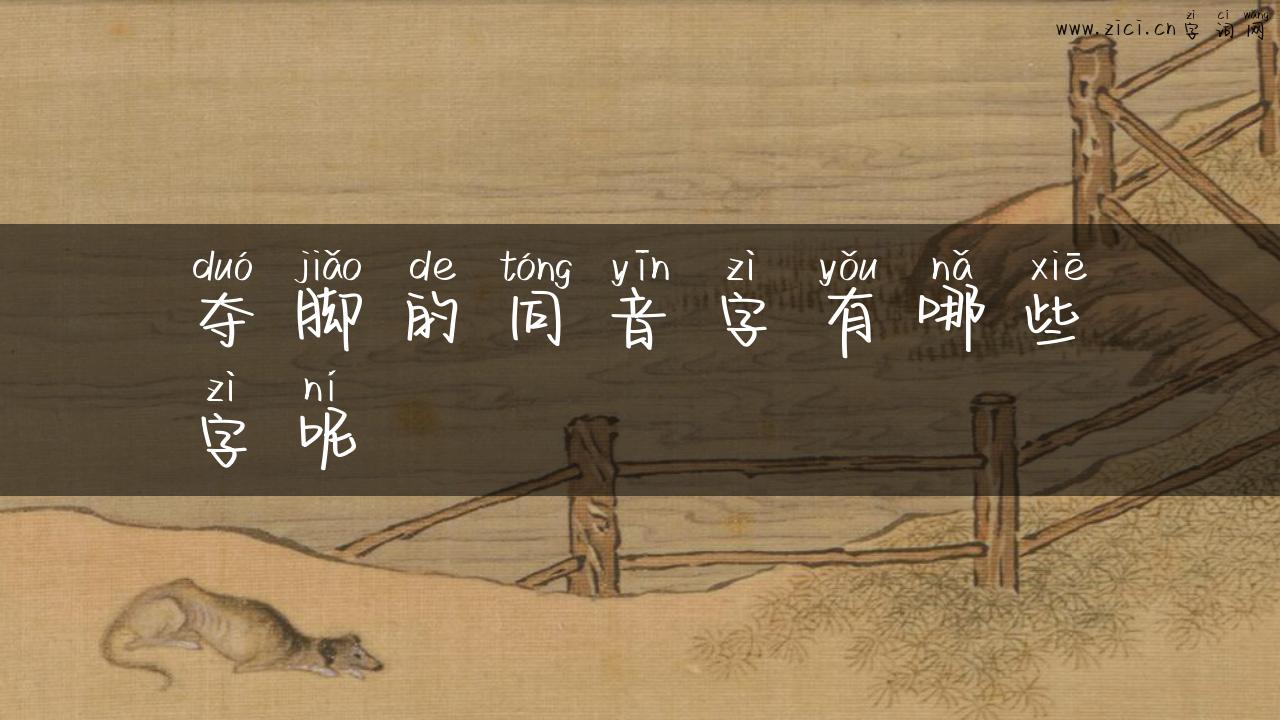 zì cì wǎng
www.zici.cn 字词网
duó jiǎo de tóng yīn zì yǒu nǎ xiē
夺脚的同音字有哪些
zì ní
字呢